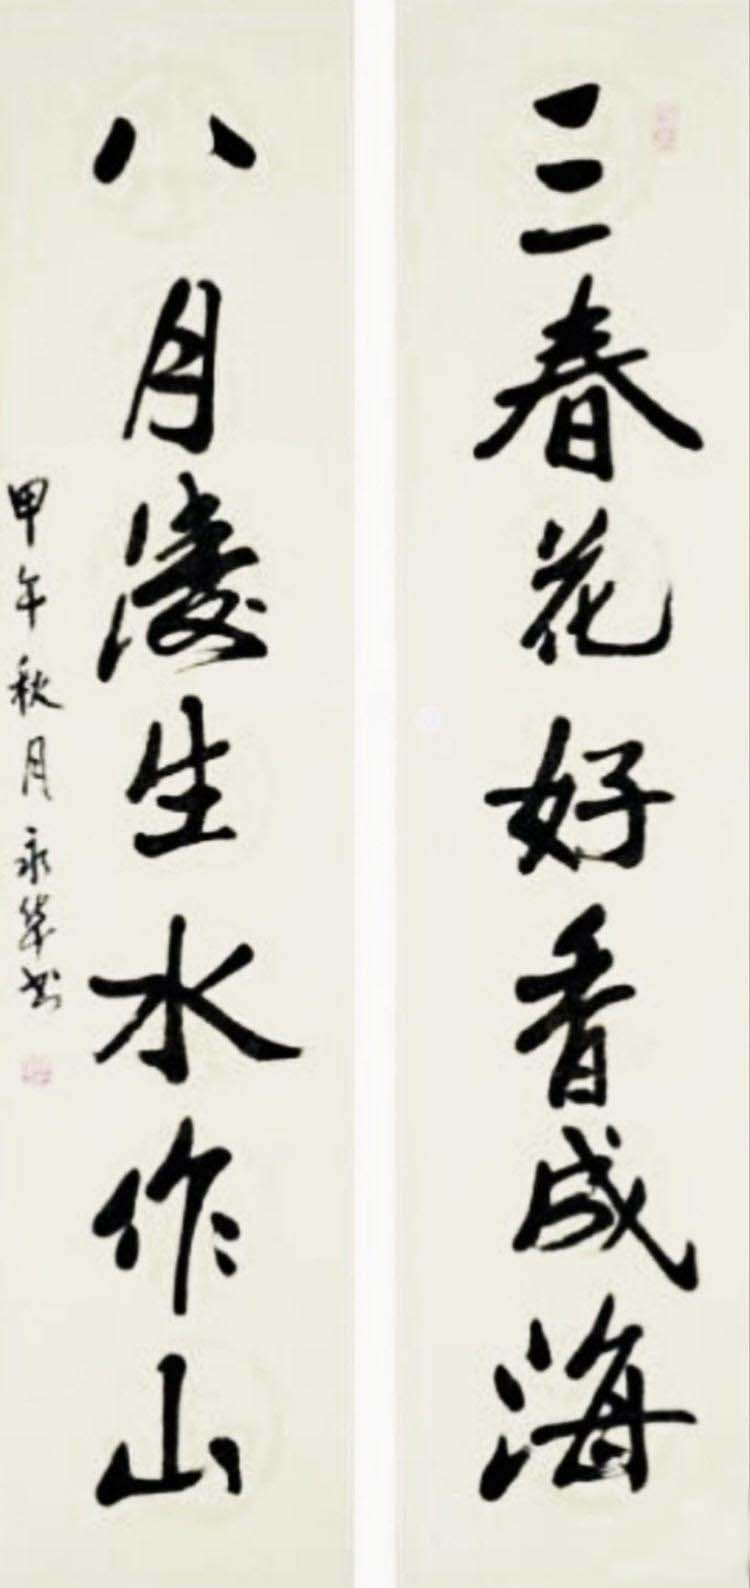 三春花好香成海
八月濤生水作山
甲午秋月永华书